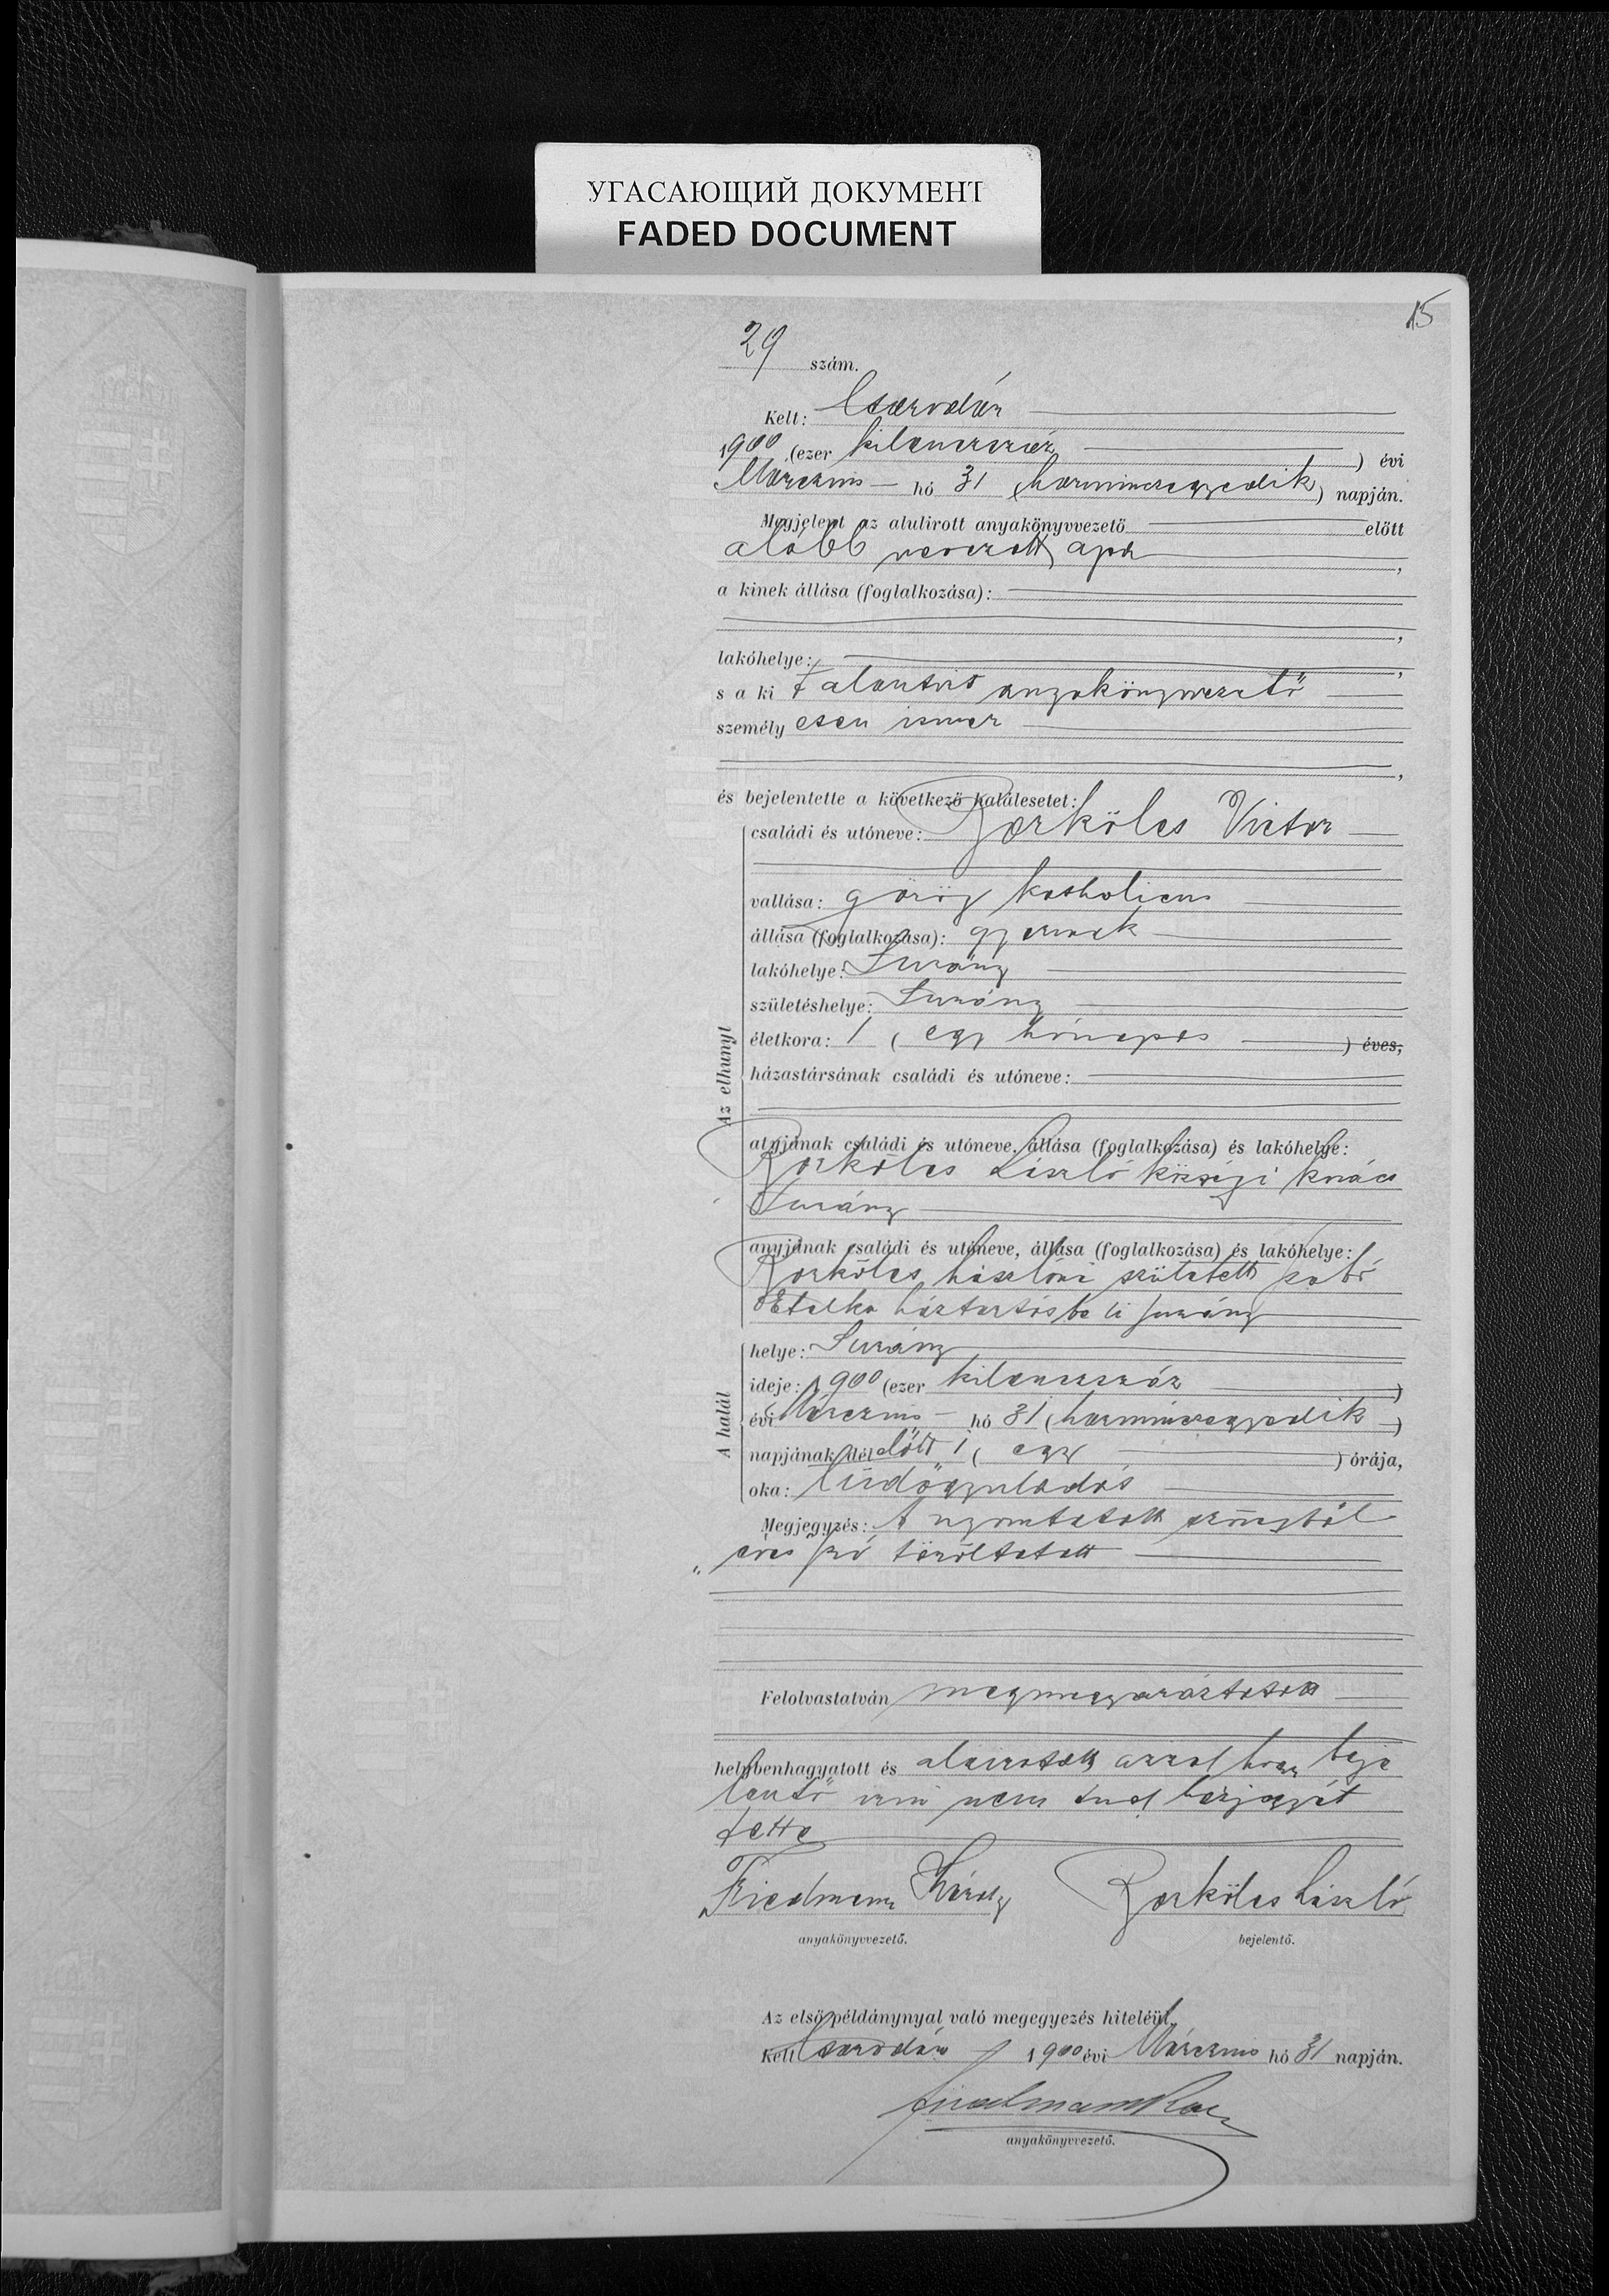 УГАСАЮЩИЙ ДОКУМЕНТ
FADED DOCUMENT
15
29 szám.
Kelt: Csarodán
1900 (ezer kilenczszáz ) évi
Márczius hó 31 (harminczegyedik) napján.
Megjelent az alulirott anyakönyvvezető előtt
alább nevezett apa ,
a kinek állása (foglalkozása):
,
lakóhelye: ,
s a ki t alantirt anyakönyvvezető
személy esen ismer
,
és bejelentette a következő halálesetet:
Az elhunyt
családi és utóneve: Borkóles Victor
vallása: görög katholicus
állása (foglalkozása): gyermek
lakóhelye: Surány
születéshelye: Surány
életkora: 1 ( egy hónapos ) éves,
házastársának családi és utóneve:
atyjának családi és utóneve, állása (foglalkozása) és lakóhelye:
László községi kovács
Surány
anyjának családi és utóneve, állása (foglalkozása) és lakóhelye:
Lászlóné született Szabó
Etelka háztartásbeli Surány
A halál
helye: Surány
ideje: 1900 (ezer kilenczszáz )
évi Márczius hó 31 (harminczegyedik )
napjának dél előtt 1 ( egy ) órája,
oka: tüdőgyuladás
Megjegyzés: A nyomtatott szövegből
„éves szó töröltetett
Felolvastatván megmagyaráztatott
helybenhagyatott és aláiratott azzal hogy beje
lentő irni nem tud kézjegyét
tette
Friedmann Károly László
anyakönyvvezető. bejelentő.
Az első példánynyal való megegyezés hiteléül.
Kelt Csarodán 1900 évi Márczius hó 31 napján.
Friedmann
anyakönyvvezető.